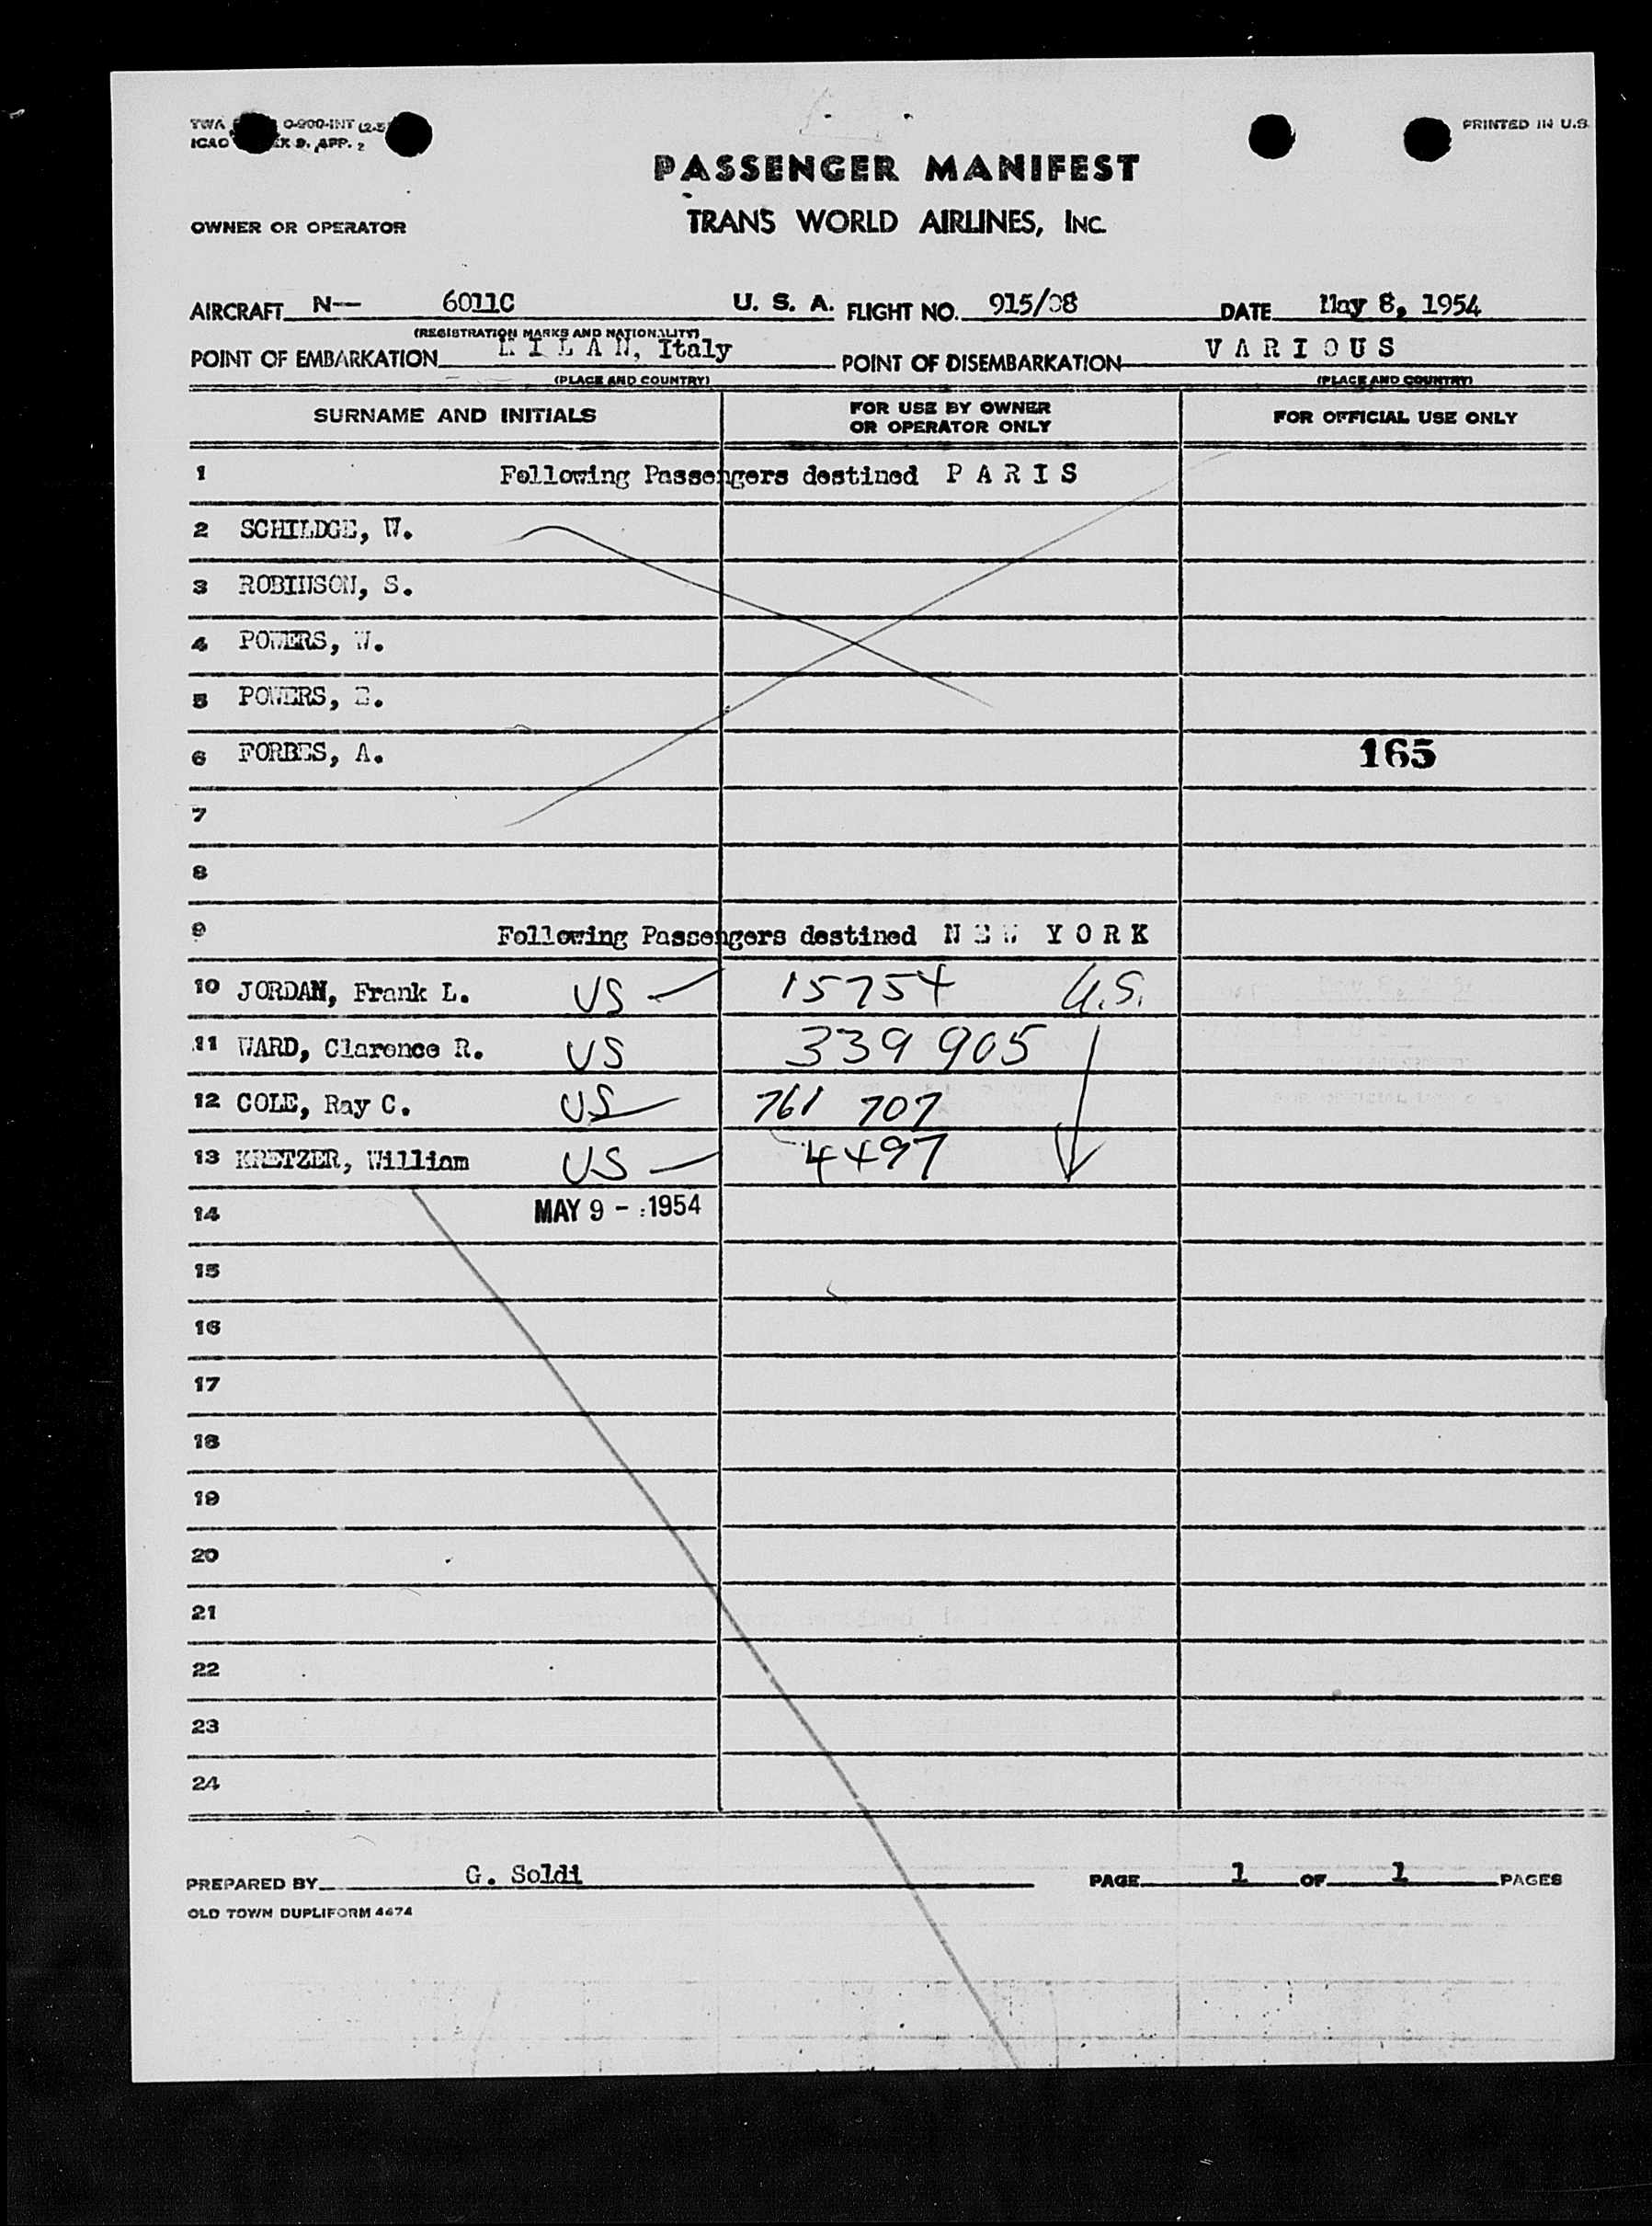 TWA O-900-INT (2-5
ICAO EX 9, APP. 2
PRINTED IN U.S.
PASSENGER MANIFEST
OWNER OR OPERATOR TRANS WORLD AIRLINES, INC.
AIRCRAFT N— 6011C U. S. A. FLIGHT NO. 915/08 DATE May 8, 1954
(REGISTRATION MARKS AND NATIONALITY)
POINT OF EMBARKATION MILAN, Italy POINT OF DISEMBARKATION VARIOUS
(PLACE AND COUNTRY) (PLACE AND COUNTRY)
SURNAME AND INITIALS FOR USE BY OWNER OR OPERATOR ONLY FOR OFFICIAL USE ONLY
1 Following Passengers destined PARIS
2 SCHILDGE, W.
3 ROBINSON, S.
4 POWERS, W.
5 POWERS, E.
6 FORBES, A. 165
7
8
9 Following Passengers destined NEW YORK
10 JORDAN, Frank L. US 15754 U.S.
11 WARD, Clarence R. US 339 905
12 COLE, Ray C. US 761 707
13 KRETZER, William US 4497
14 MAY 9 - 1954
15
16
17
18
19
20
21
22
23
24
PREPARED BY G. Soldi PAGE 1 OF 1 PAGES
OLD TOWN DUPLIFORM 4674